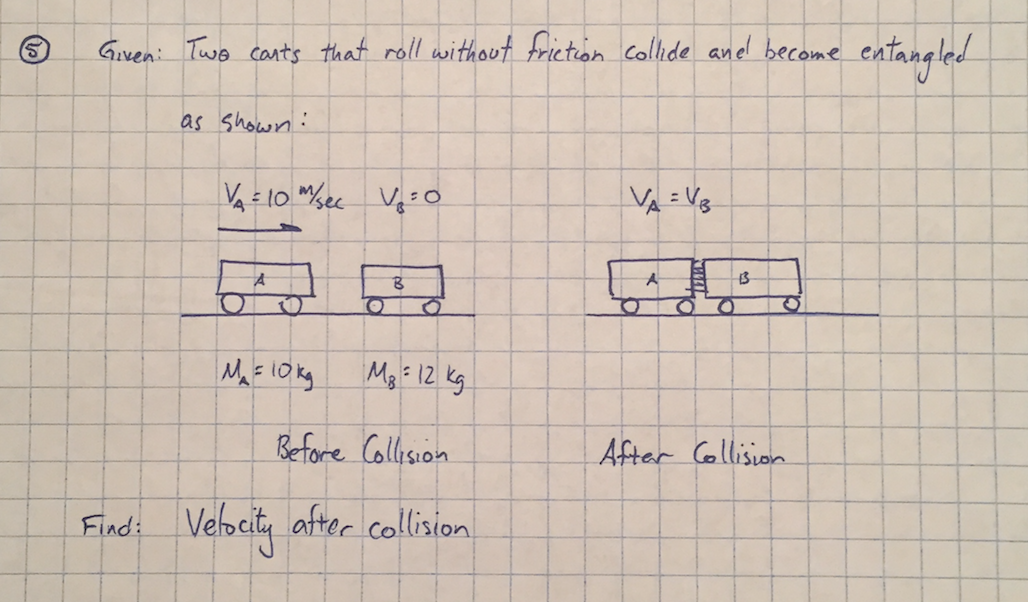 5 Given: Two carts that roll without friction collide and become entangled
as shown:
V_A = 10 m/sec V_B = 0 V_A = V_B
A B A B
M_A = 10 kg M_B = 12 kg
Before Collision After Collision
Find: Velocity after collision